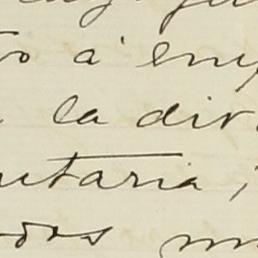 to á emp
la div
utaria,
dos m